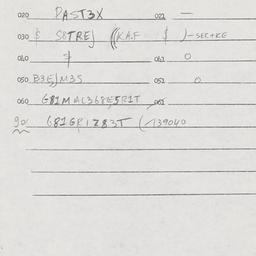 020 DAST3X 021 —
030 $ S8TREJ ((KAF $ )-SEC+KE
040 041 0
050 B3EJM3S 051 0
060 G81MAC368E5R1T 061
90 G81GRIZ83T (/139040